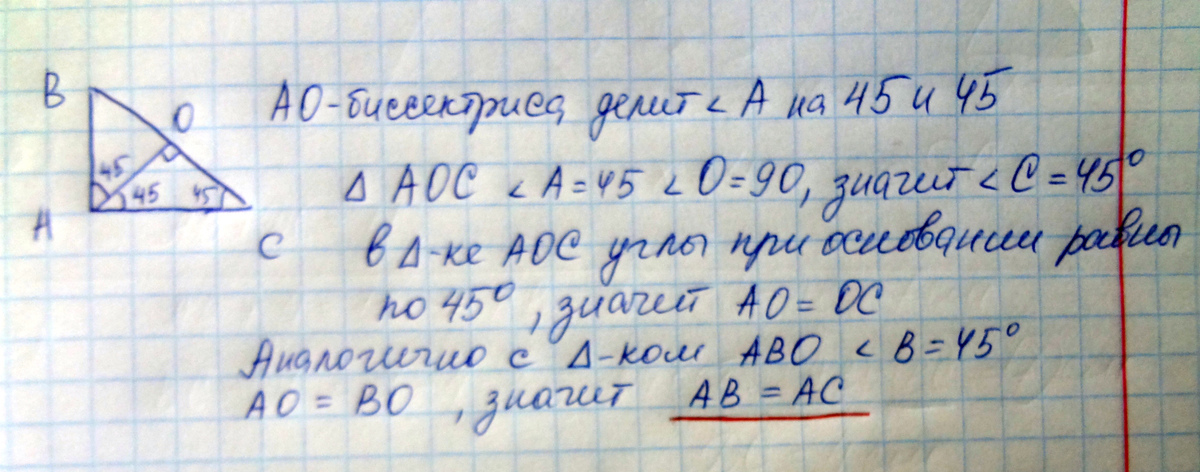 B
O
45
45
45
A
C
AO-биссектриса, делит < A на 45 и 45
Δ AOC < A = 45 < O = 90, значит < C = 45°
в Δ-ке AOC углы при основании равны
по 45°, значит AO = OC
Аналогично с Δ-ком ABO < B = 45°
AO = BO , значит AB = AC